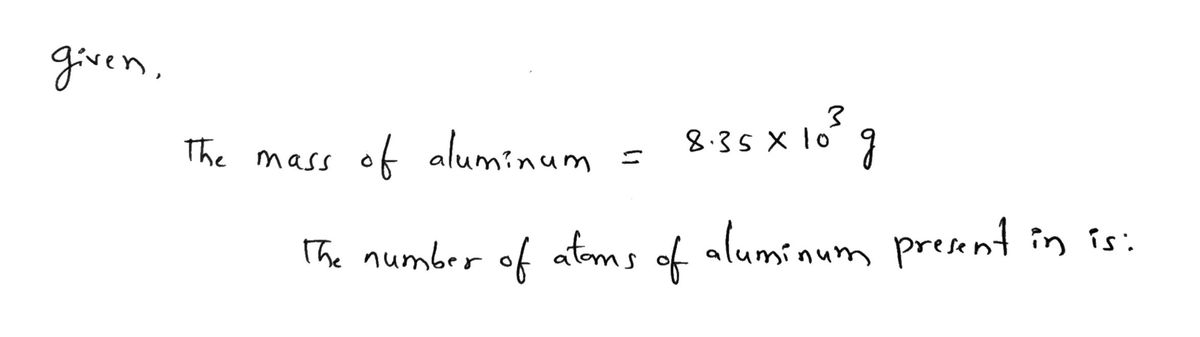 given,
The mass of aluminum = 8.35 × 10³ g
The number of atoms of aluminum present in is: